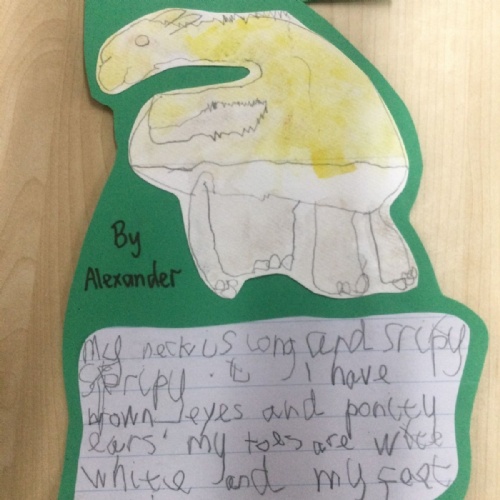 By
Alexander
My neck is long and sripy
Stripy . I have
brown eyes and pointy
ears my toes are wite
white and my feet